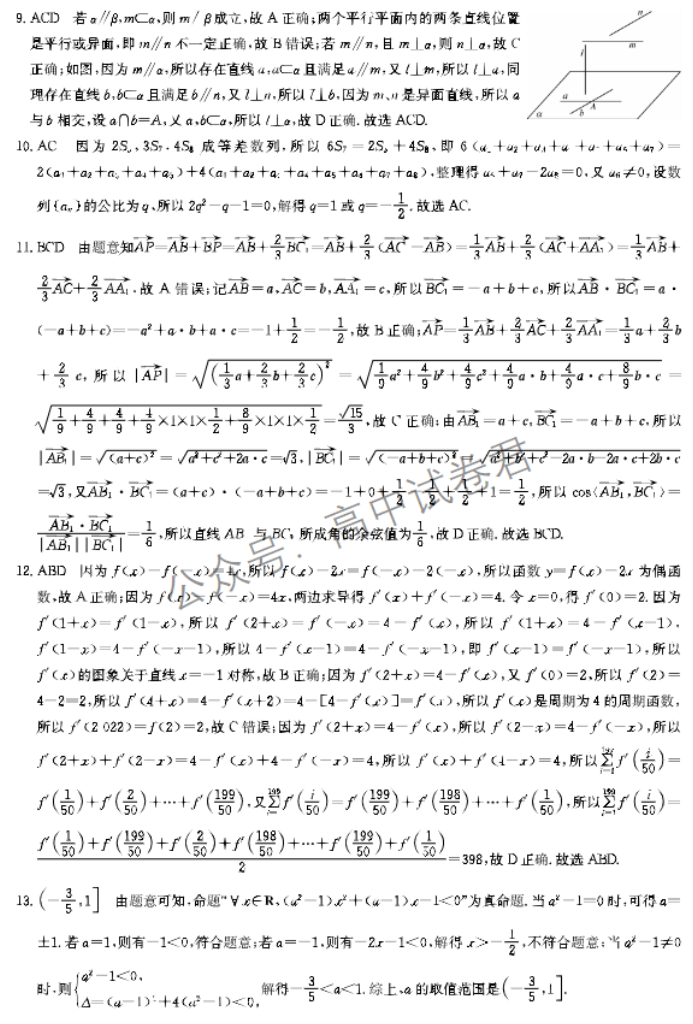 9. ACD 若 α∥β,m⊂α,则 m∥β成立,故 A 正确;两个平行平面内的两条直线位置
是平行或异面,即 m∥n 不一定正确,故 B 错误;若 m∥n,且 m⊥α,则 n⊥α,故 C
正确;如图,因为 m∥α,所以存在直线 a,a⊂α 且满足 a∥m,又 l⊥m,所以 l⊥a,同
理存在直线 b,b⊂α 且满足 b∥n,又 l⊥n,所以 l⊥b,因为 m、n 是异面直线,所以 a
与 b 相交,设 a∩b=A,又 a,b⊂α,所以 l⊥α,故 D 正确.故选 ACD.
n
m
l
a
A
b
α
10. AC 因为 2S₅,3S₇,4S₈ 成等差数列,所以 6S₇=2S₅+4S₈,即 6(a₁+a₂+a₃+a₄+a₅+a₆+a₇)=
2(a₁+a₂+a₃+a₄+a₅)+4(a₁+a₂+a₃+a₄+a₅+a₆+a₇+a₈),整理得 a₆+a₇-2a₈=0,又 a₆≠0,设数
列{aₙ}的公比为 q,所以 2q²-q-1=0,解得 q=1 或 q=-1/2.故选 AC.
11. BCD 由题意知AP=AB+BP=AB+2/3 BC₁=AB+2/3(AC₁-AB)=1/3 AB+2/3(AC+AA₁)=1/3 AB+
2/3 AC+2/3 AA₁,故 A 错误;记AB=a,AC=b,AA₁=c,所以BC₁=-a+b+c,所以AB·BC₁=a·
(-a+b+c)=-a²+a·b+a·c=-1+1/2=-1/2,故 B 正确;AP=1/3 AB+2/3 AC+2/3 AA₁=1/3 a+2/3 b
+2/3 c,所以|AP|=√(1/3 a+2/3 b+2/3 c)²=√(1/9 a²+4/9 b²+4/9 c²+4/9 a·b+4/9 a·c+8/9 b·c)=
√(1/9+4/9+4/9+4/9×1×1×1/2+8/9×1×1×1/2)=√15/3,故 C 正确;由AB₁=a+c,BC₁=-a+b+c,所以
|AB₁|=√(a+c)²=√(a²+c²+2a·c)=√3,|BC₁|=√(-a+b+c)²=√(a²+b²+c²-2a·b-2a·c+2b·c)
=√3,又AB₁·BC₁=(a+c)·(-a+b+c)=-1+0+1/2-1/2+1/2+1=1/2,所以 cos⟨AB₁,BC₁⟩=
AB₁·BC₁/(|AB₁||BC₁|)=1/6,所以直线 AB₁ 与 BC₁ 所成角的余弦值为1/6,故 D 正确.故选 BCD.
12. ABD 因为 f(x)-f(-x)=4x,所以 f(x)-2x=f(-x)-2(-x),所以函数 y=f(x)-2x 为偶函
数,故 A 正确;因为 f(x)-f(-x)=4x,两边求导得 f′(x)+f′(-x)=4.令 x=0,得 f′(0)=2.因为
f′(1+x)=f′(1-x),所以 f′(2+x)=f′(-x)=4-f′(x),所以 f′(1+x)=4-f′(x-1),
f′(1-x)=4-f′(-x-1),所以 4-f′(x-1)=4-f′(-x-1),即 f′(x-1)=f′(-x-1),所以
f′(x)的图象关于直线 x=-1 对称,故 B 正确;因为 f′(2+x)=4-f′(x),又 f′(0)=2,所以 f′(2)=
4-2=2,所以 f′(4+x)=4-f′(x+2)=4-[4-f′(x)]=f′(x),所以 f′(x)是周期为 4 的周期函数,
所以 f′(2 022)=f(2)=2,故 C 错误;因为 f′(2+x)=4-f′(x),所以 f′(2-x)=4-f′(-x),所以
f′(2+x)+f′(2-x)=4-f′(x)+4-f′(-x)=4,所以 f′(x)+f′(4-x)=4,所以∑(i=1→199) f′(i/50)=
f′(1/50)+f′(2/50)+…+f′(199/50),又∑(i=1→199) f′(i/50)=f′(199/50)+f′(198/50)+…+f′(1/50),所以∑(i=1→199) f′(i/50)=
[f′(1/50)+f′(199/50)+f′(2/50)+f′(198/50)+…+f′(199/50)+f′(1/50)]/2=398,故 D 正确.故选 ABD.
13. (-3/5,1] 由题意可知,命题“∀x∈R,(a²-1)x²+(a-1)x-1<0”为真命题.当 a²-1=0 时,可得 a=
±1.若 a=1,则有-1<0,符合题意;若 a=-1,则有-2x-1<0,解得 x>-1/2,不符合题意;当 a²-1≠0
时,则{a²-1<0, Δ=(a-1)²+4(a²-1)<0, 解得-3/5<a<1.综上,a 的取值范围是(-3/5,1].
公众号:高中试卷君